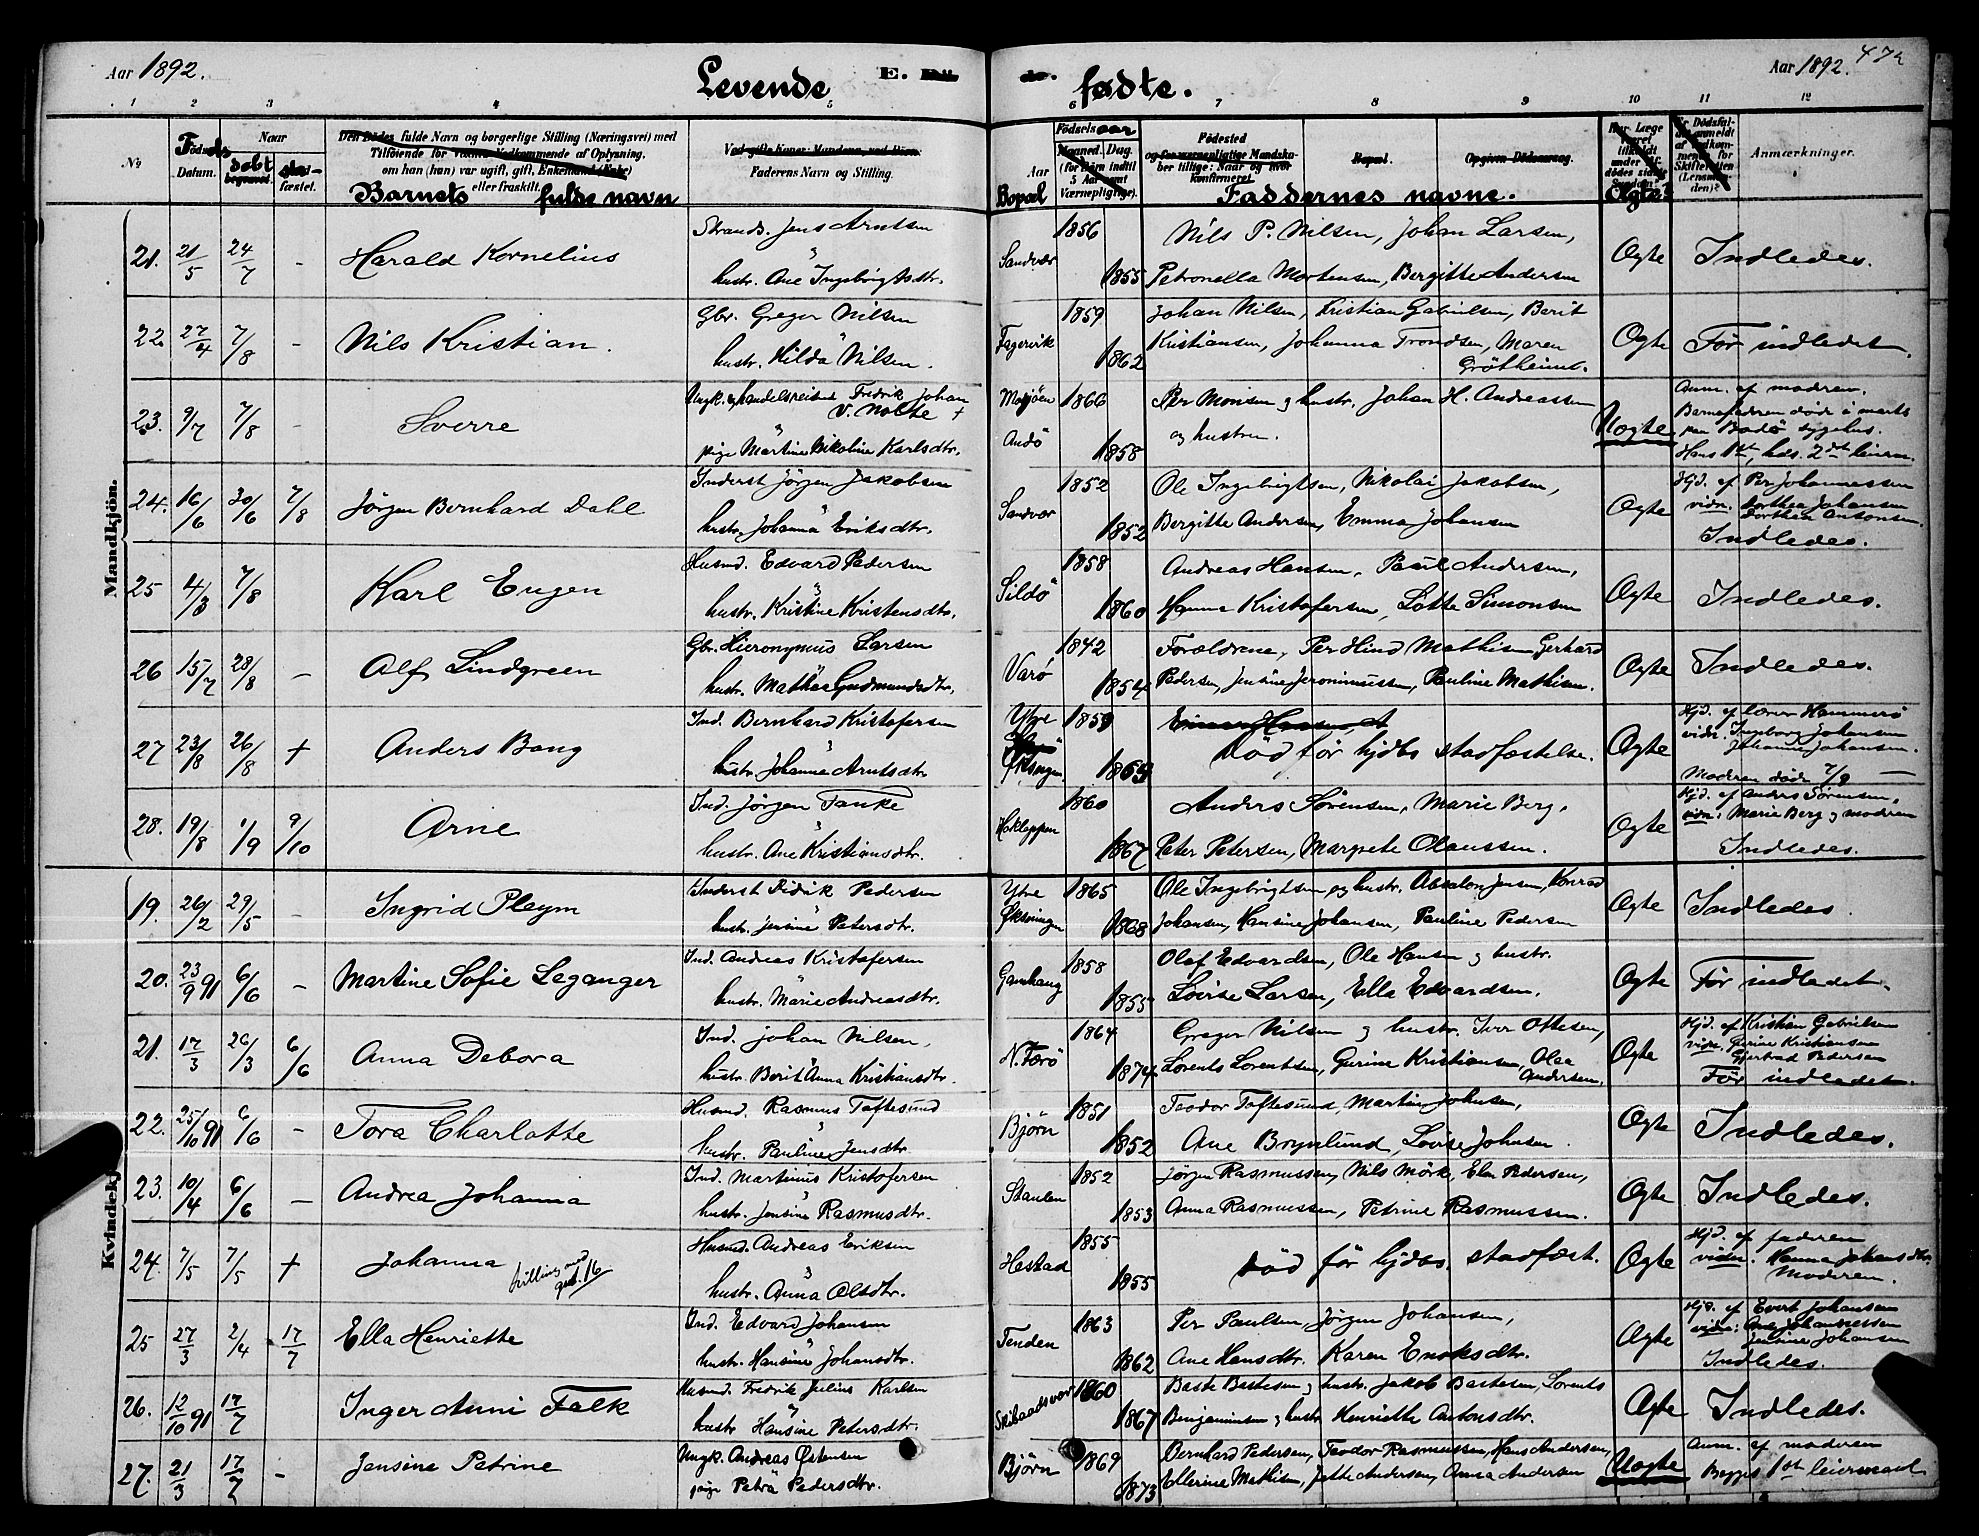 Aar 1892. Levende E. fødte. Aar 1892. 472
1 2 3 4 5 6 7 8 9 10 11 12
No. Føds Datum. Naar døbt stadfæstet. Barnets fulde navn Faderens Navn og Stilling. Bopæl Fødselsaar Faddernes navne. Ægte? Anmærkninger.
Mandkjön.
21. 21/5 24/7 - Harald Kornelius Strands. Jens Arntsen Sandvær 1856 Nils P. Nilsen, Johan Larsen, Ægte Indledes.
hustr. Ane Ingebrigtsdtr. 1855 Petronella Mortensen, Bergitte Andersen
22. 27/4 7/8 - Nils Kristian. Gbr. Greger Nilsen Fagervik 1859 Johan Nilsen, Kristian Gabrielsen, Berit Ægte Før indledet.
hustr. Hilda Nilsen. 1862 Kristiansen, Johanna Trondsen, Maren
Gröttheimt.
23. 9/7 7/8 - Sverre Ungk. handelsreisend Fredrik Johan Mosjöen 1866 Per Monsen og hustr. Johan H. Andreassen Uægte Anm. af moderen.
V. Nolte + Andö Barnefaderen döde i marts
pige Martine Nikoline Karlsdtr. 1858 og hustru. paa Bodö sygehus.
Hans 1st, hds. 2det leierm.
24. 16/6 30/6 7/8 Jörgen Bernhard Dahl Inderst Jörgen Jakobsen Sandvær 1852 Ole Ingebrigtsen, Nikolai Jakobsen, Ægte Hjd. af Per Johannessen
hustr. Johanna Eriksdtr. 1852 Bergitte Andersen, Emma Johansen vidn. Dorthea Johansen
Dorthea Antonsen.
Indledes.
25 4/3 7/8 Karl Eugen Husmd. Edvard Pedersen Sildö 1858 Andreas Hansen, Paul Andersen, Ægte Indledes.
hustr. Kristine Kristensdtr. 1860 Hanna Kristofersen, Lotte Simonsen
26 15/7 28/8 - Alf Lindgreen Gbr. Hieronymus Larsen Varö 1842 Forældrene, Per Hind Mathisen Gerhard Ægte Indledes.
hustr. Mathea Gudmundsdtr. 1854 Pedersen, Jensine Jeronimussen, Pauline Mathisen.
27 23/8 26/8 + Anders Bang Ind. Bernhard Kristofersen Ytre Øksningen 1859 Død før hjdbs stadfæstelse. Ægte Hjd. af lærer Hammerö
hustr. Johanna Arntsdtr. 1865 vidn. Ingeborg Johansen
Johanna Johansen.
Moderen döde 7/9
28. 19/8 1/9 9/10 Arne Ind. Jörgen Tanke Hokleppen 1860 Anders Sörensen, Marie Berg, Ægte Hjd. af Anders Sörensen,
hustr. Ane Kristiansdtr. 1867 Peter Petersen, Margrete Olaussen. vidn: Marie Berg og moderen
Indledes.
Kvindekj.
19. 26/2 29/5 - Ingrid Pleym Inderst Didrik Pedersen Ytre Øksningen 1865 Ole Ingebrigtsen og hustr. Absalon Jensen, Konrad Ægte Indledes
hustr. Jensine Petersdtr. 1868 Johansen, Hansine Johansen, Pauline Pedersen
20. 23/9 91 6/6 - Martine Sofie Leganger Ind. Andreas Kristofersen 1858 Olaf Edvardsen, Ole Hansen og hustr. Ægte Før indledet.
hustr. Marie Andreasdtr. 1855 Lovise Larsen, Ella Edvardsen.
21. 17/3 26/3 6/6 Anna Debora Ind. Johan Nilsen, N. Færö 1864 Greger Nilsen og hustr. Iver Ottesen, Ægte Hjd. af Kristian Gabrielsen
hustr. Berit Anna Kristiansdtr. 1874 Lorents Lorentsen, Gurine Kristiansen, Olea vidn. Gurine Kristiansen
Andersen. Gjertrud Pedersen
Før indledet.
22. 25/10 91 6/6 - Tora Charlotte Husmd. Rasmus Toftesund Bjørn 1851 Teodor Toftesund, Martin Johnsen, Ægte Indledes.
hustr. Pauline Jensdtr. 1852 Ane Brynlund, Lovise Johnsen.
23. 10/4 6/6 - Andrea Johanna Ind. Martinus Kristofersen Staulen 1852 Jørgen Rasmussen, Nils Mörk, Elen Pedersen, Ægte Indledes.
hustr. Jensine Rasmusdtr. 1853 Anna Rasmussen, Petrine Rasmussen.
24. 7/5 7/5 + Johanna tvilling med gut. 16 Husmd. Andreas Eriksen Hestad 1855 Død før hjdbs. stadfæst. Ægte Hjd. af faderen
hustr. Anna Olsdtr. 1855 vidn. Hanna Johansdtr.
Moderen.
25 27/3 2/4 17/7 Ella Henriette Ind. Edvard Johansen Tenden 1863 Per Paulsen, Jørgen Johansen, Ægte Hjd. af Evert Johansen
hustr. Hansine Johansdtr. 1862 Ane Hansdtr. Karen Enoksdtr. vidn: Ane Johannessen
Jensine Johansen
Indledes.
26. 12/10 91 17/7 Inger Anni Falk Husmd. Fredrik Julius Karlsen Skibaadsvær 1860 Baste Bastesen og hustr. Jakob Bastesen, Lorents Ægte Indledes.
hustr Hansine Petersdtr. 1867 Benjaminsen og hustr. Henriette Antonsdtr.
27. 21/3 17/7 - Jensine Petrine Ungk. Andreas Østensen Bjørn 1869 Bernhard Pedersen, Teodor Rasmussen, Hans Andersen, Uægte Anm. af moderen
pige Petra Pedersdtr. 1873 Ellerine Mathisen, Jette Andersen, Anna Andersen Begges 1st leiermaal